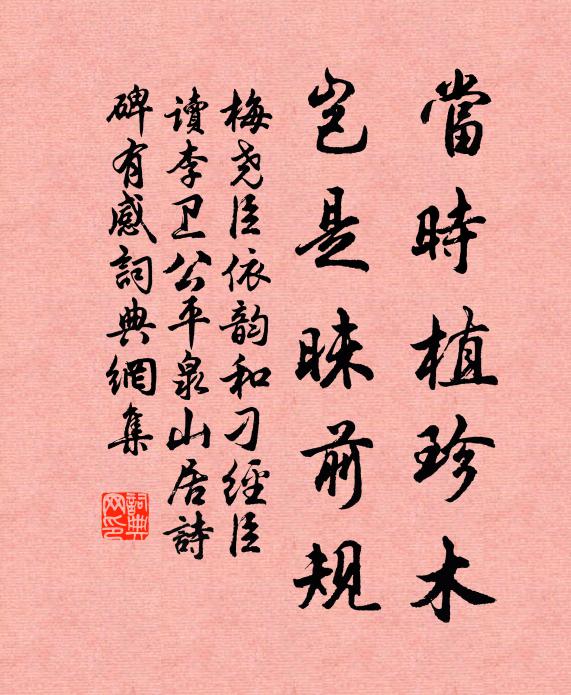 當時植珍木
豈是昧前規
梅尧臣依韵和刁經臣
讀李卫公平泉山居詩
碑有感詞典網集
詞典网印